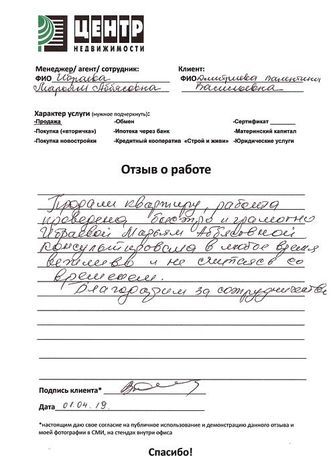 ЦЕНТР
НЕДВИЖИМОСТИ
Менеджер/ агент/ сотрудник: Клиент:
ФИО Ибраева ФИО Дмитриева Валентина
Марьям Абязовна Васильевна
Характер услуги (нужное подчеркнуть):
-Продажа -Обмен -Сертификат
-Покупка («вторичка») -Ипотека через банк -Материнский капитал
-Покупка новостройки -Кредитный кооператив «Строй и живи» -Юридические услуги
Отзыв о работе
Продали квартиру, работа
проведена быстро и грамотно
Ибраевой Марьям Абязовной
консультировала в любое время
вежливо и не считаясь со
временем.
Благодарим за сотрудничество
Подпись клиента*
Дата 01.04.19.
*настоящим даю свое согласие на публичное использование и демонстрацию данного отзыва и
моей фотографии в СМИ, на стендах внутри офиса
Спасибо!